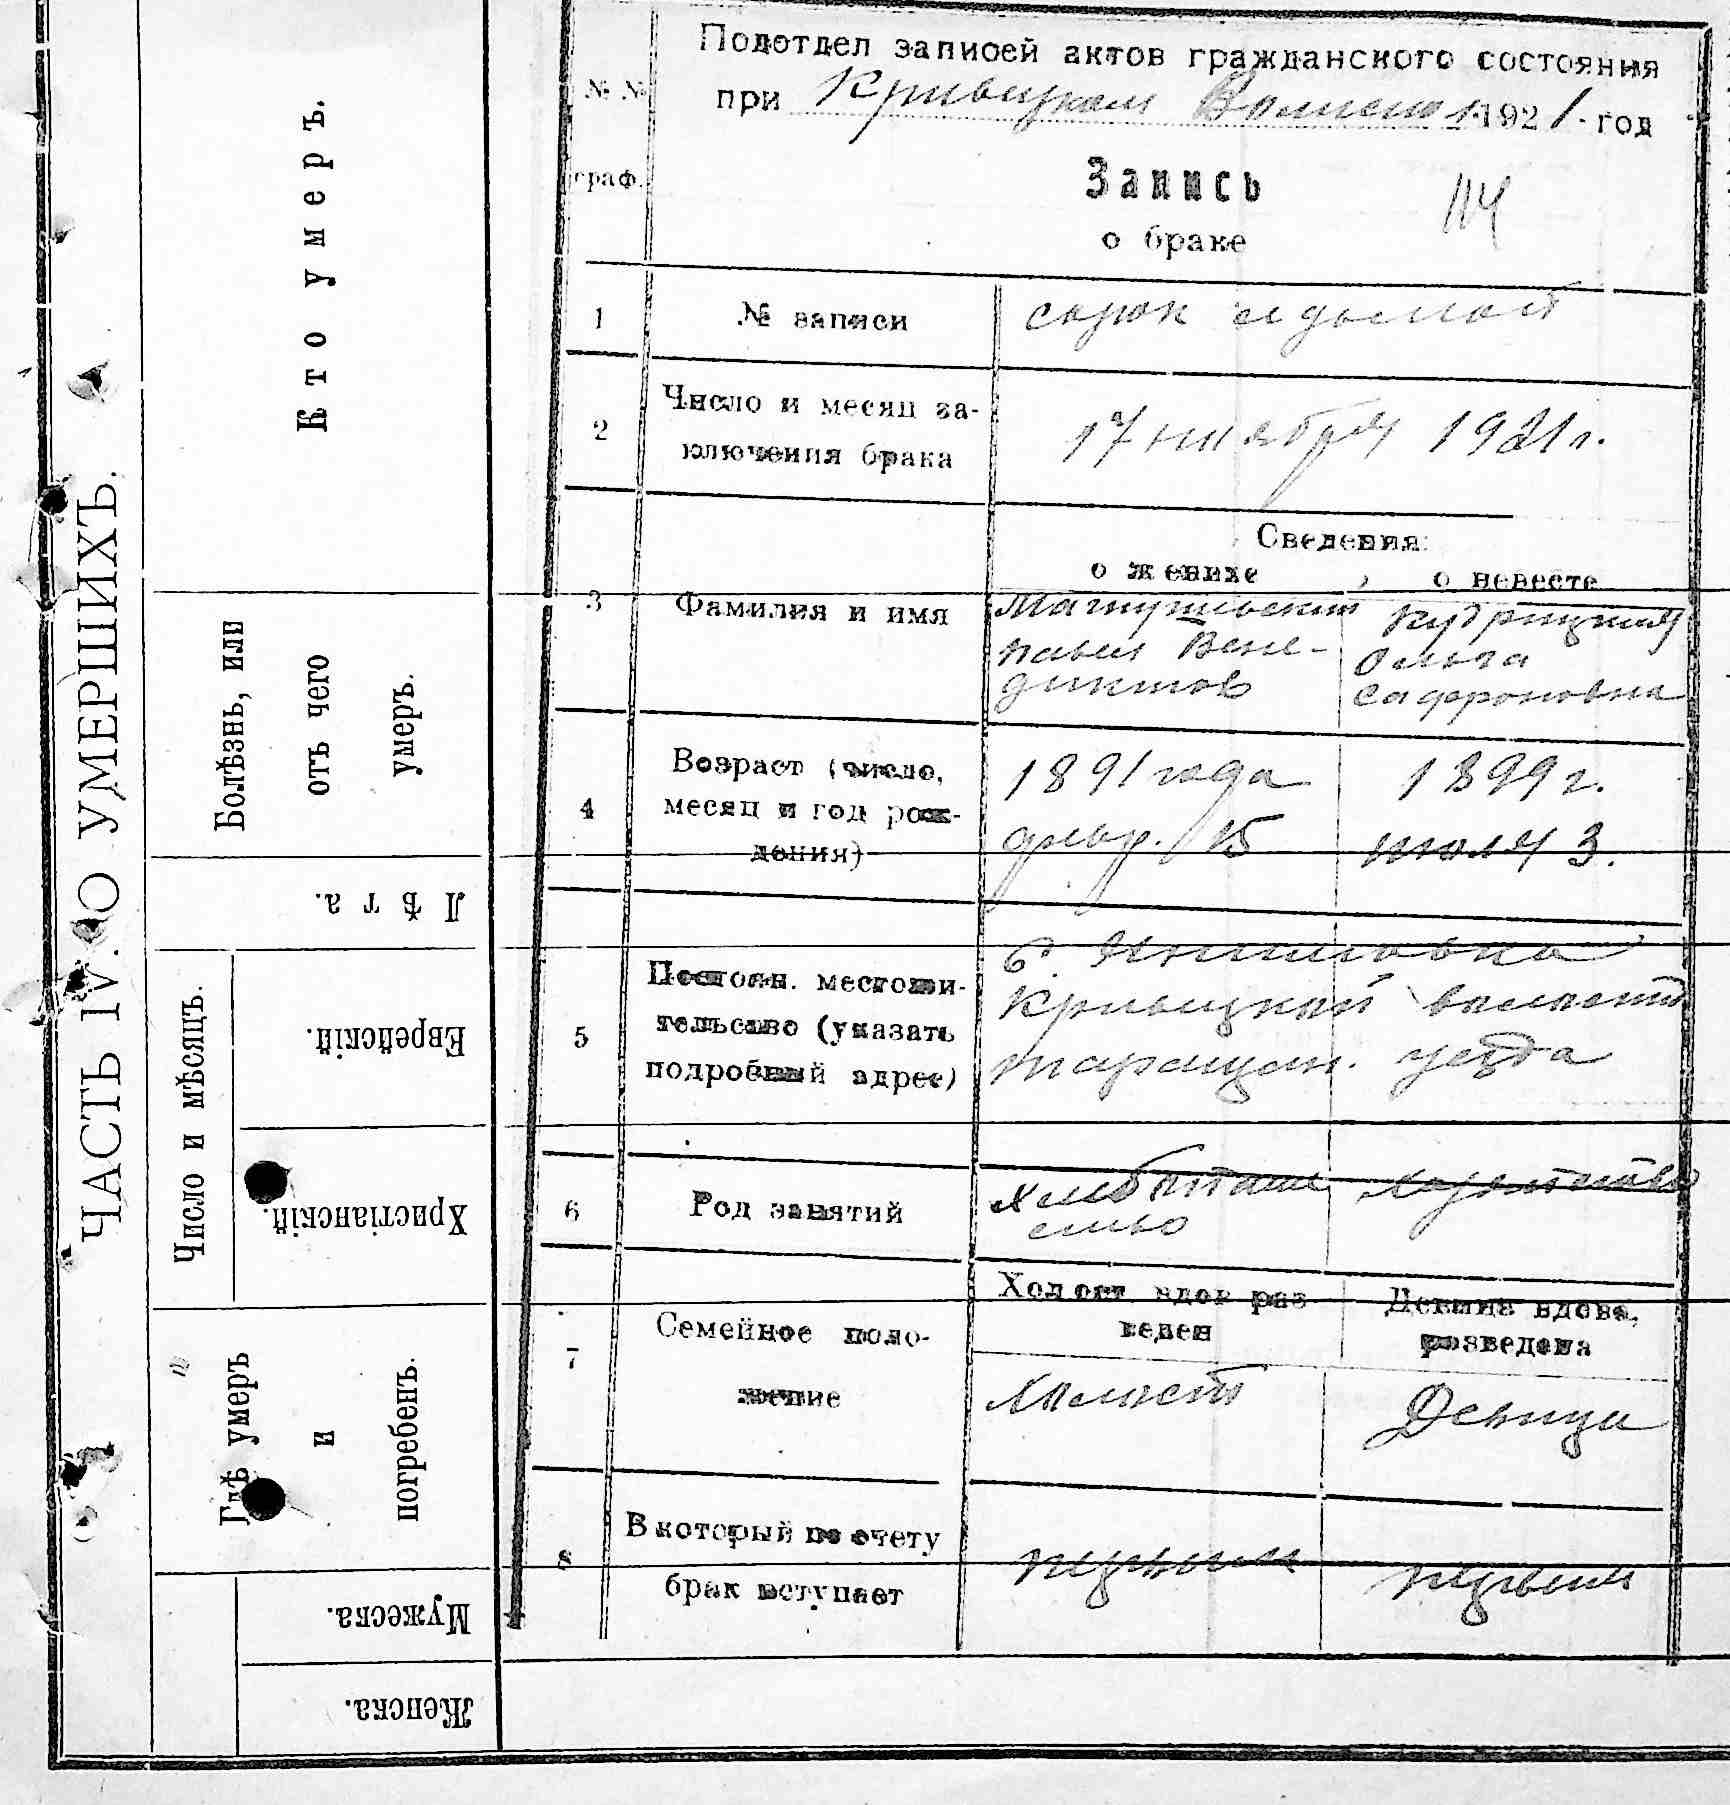 ЧАСТЬ IV. О УМЕРШИХЪ.
Кто умеръ.
Болѣзнь, или
отъ чего
умеръ.
Лѣта.
Число и мѣсяцъ.
Еврейскій.
Христіанскій.
Гдѣ умеръ
и
погребенъ.
Мужеска.
Женска.
№№
граф.
Подотдел записей актов гражданского состояния
при Кривецком 1921. год
Запись
114
о браке
1 № записи сорок седьмой
2 Число и месяц за-
ключения брака
17 ноября 1921 г.
Сведения:
о женихе , о невесте
3 Фамилия и имя
Павел Вене-
диктов
Кудрицкая
Ольга
Сафроновна
4 Возраст (число,
месяц и год рож-
дения)
1891 года
февр. 15
1899 г.
июля 3.
5 Постоян. местожи-
тельство (указать
подробный адрес)
Кривецкой волости
таращан. уезда
6 Род занятий
7 Семейное поло-
жение
Холост вдов раз
веден
Девица вдова,
розведена
Холост
Девица
8 В который по счету
брак вступает
первый
первый